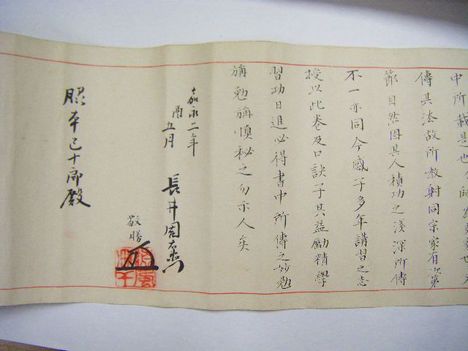 中所載是也
傳其法故所教射同宗家有次第
節目然因其人積功之淺深所傳
不一亦同今感子多年講習之志
授以此卷及口訣子其益勵精學
習功日進必得書中所傳之妙勉
旃勉旃慎秘之勿示人矣
嘉永二年
酉五月
長井
敬勝
十郎殿